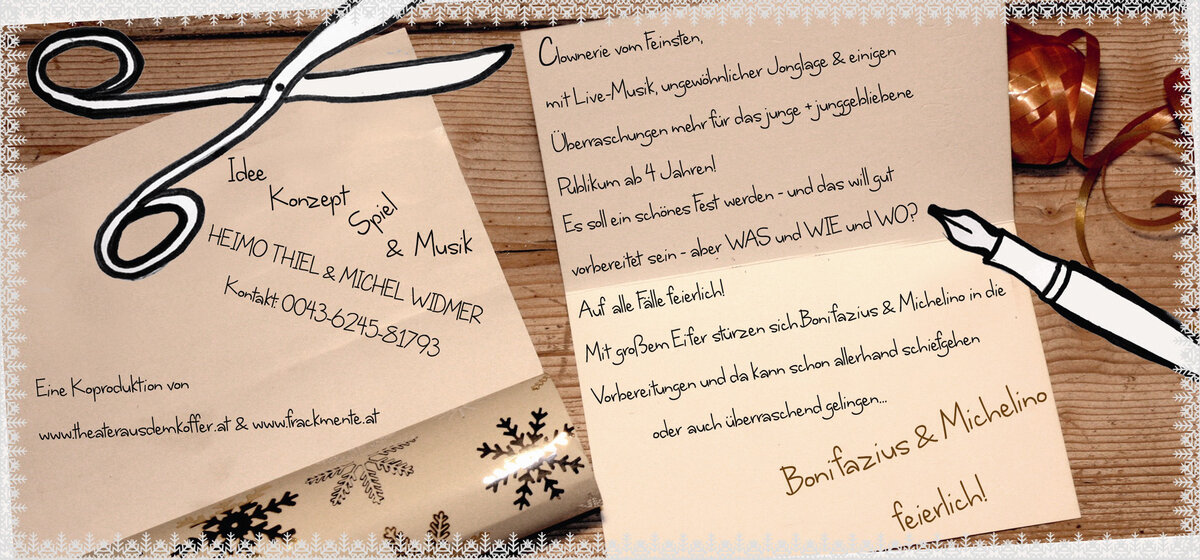 Idee
Konzept
Spiel
& Musik
HEIMO THIEL & MICHEL WIDMER
Kontakt 0043-6245-81793
Eine Koproduktion von
www.theaterausdemkoffer.at & www.frackmente.at
Clownerie vom Feinsten,
mit Live-Musik, ungewöhnlicher Jonglage & einigen
Überraschungen mehr für das junge + junggebliebene
Publikum ab 4 Jahren!
Es soll ein schönes Fest werden - und das will gut
vorbereitet sein - aber WAS und WIE und WO?
Auf alle Fälle feierlich!
Mit großem Eifer stürzen sich Bonifazius & Michelino in die
Vorbereitungen und da kann schon allerhand schiefgehen
oder auch überraschend gelingen...
Bonifazius & Michelino
feierlich!